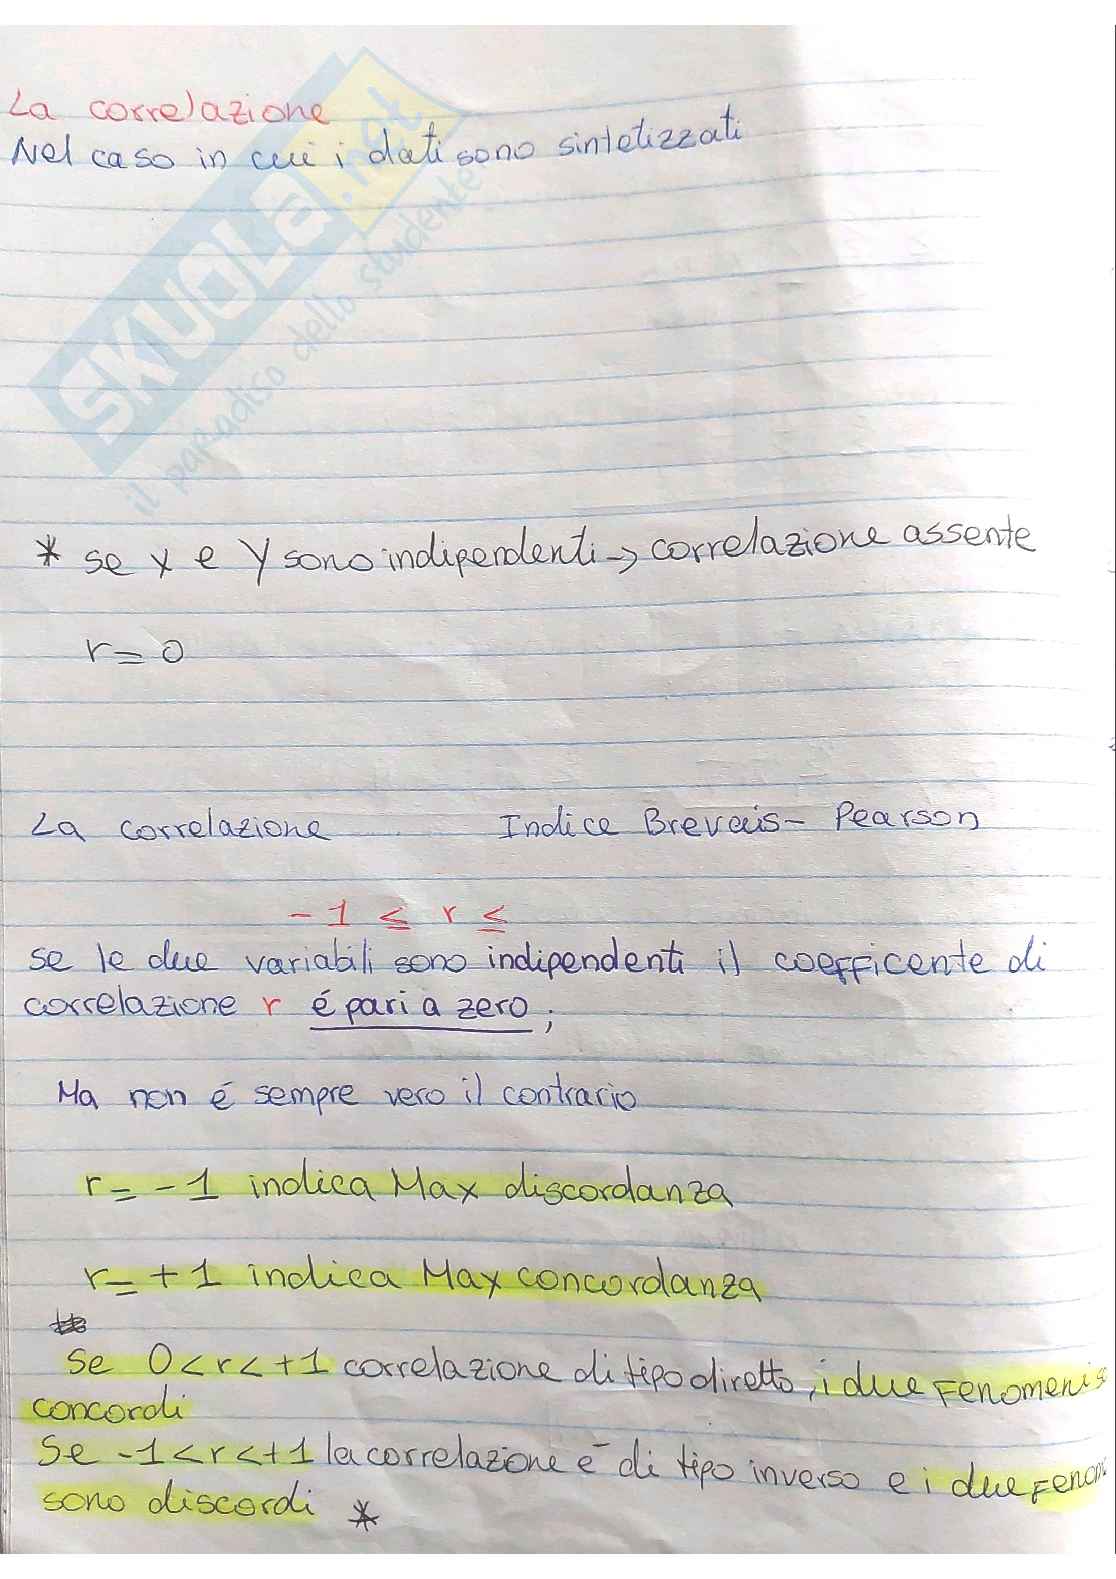 La correlazione
Nel caso in cui i dati sono sintetizzati
SKUOLA.net
il paradiso dello studente
* se x e y sono indipendenti → correlazione assente
r = 0
La correlazione Indice Brevais - Pearson
-1 ≤ r ≤
se le due variabili sono indipendenti il coefficente di
correlazione r é pari a zero;
Ma non é sempre vero il contrario
r = -1 indica Max discordanza
r = +1 indica Max concordanza
Se 0 < r < +1 correlazione di tipo diretto, i due Fenomeni
concordi
Se -1 < r < +1 la correlazione è di tipo inverso e i due
sono discordi *